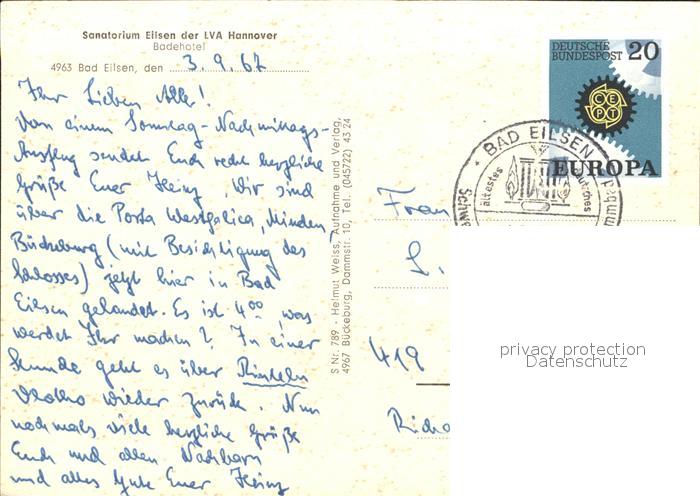 Sanatorium Eilsen der LVA Hannover
Badehotel
4963 Bad Eilsen, den 3. 9. 67
Ihr Lieben Alle!
Von einem Sonntag-Nachmittags-
Ausflug sendet Euch recht herzliche
Grüße Euer Heinz. Wir sind
über die Porta Westfalica, Minden
Bückeburg (mit Besichtigung des
Schlosses) jetzt hier in Bad
Eilsen gelandet. Es ist 4⁰⁰ was
werdet Ihr machen? In einer
Stunde geht es über Rinteln
Vlotho wieder zurück. Nun
nochmals viele herzliche Grüße
Euch und allen Nachbarn
und alles Gute Euer Heinz
S Nr. 789 - Helmut Weiss, Aufnahme und Verlag,
4967 Bückeburg, Dammstr. 10, Tel. (045722) 43 24
DEUTSCHE
BUNDESPOST 20
CEPT
EUROPA
BAD EILSEN
ältestes
Schw
Frau
L.
419
Richa
privacy protection
Datenschutz